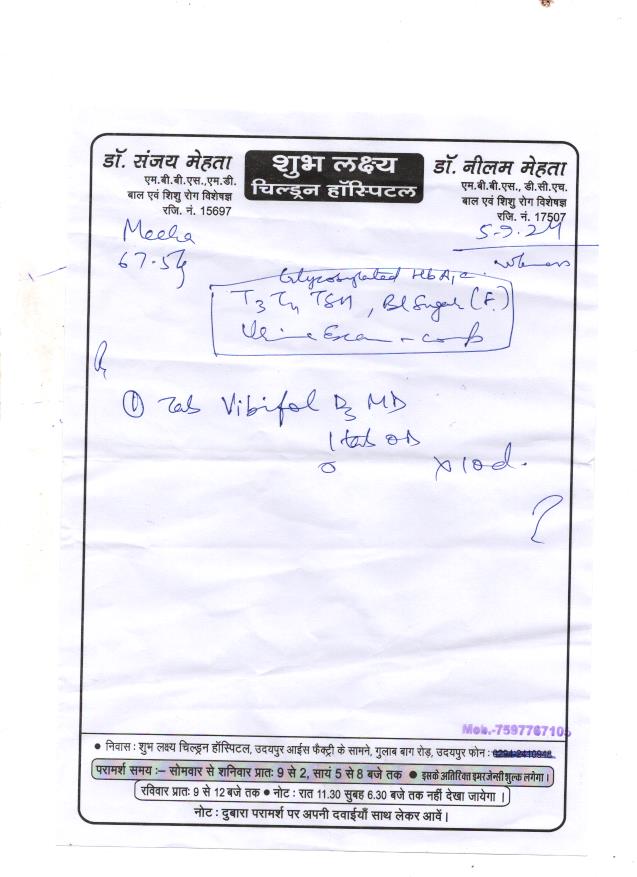 डॉ. संजय मेहता
एम.बी.बी.एस.,एम.डी.
बाल एवं शिशु रोग विशेषज्ञ
रजि. नं. 15697
शुभ लक्ष्य
चिल्ड्रन हॉस्पिटल
डॉ. नीलम मेहता
एम.बी.बी.एस., डी.सी.एच.
बाल एवं शिशु रोग विशेषज्ञ
रजि. नं. 17507
5-9-24
Glycosylated HbA1c
T3 T4 TSH, Bl Sugar (F.)
Urine Exam - comp
① Tab Vibifol D3 MD
1 tab OD
x 10 d.
Mob.-7597767105
• निवास : शुभ लक्ष्य चिल्ड्रन हॉस्पिटल, उदयपुर आईस फैक्ट्री के सामने, गुलाब बाग रोड़, उदयपुर फोन : 0294-2410948
परामर्श समय :– सोमवार से शनिवार प्रातः 9 से 2, सायं 5 से 8 बजे तक • इसके अतिरिक्त इमरजेन्सी शुल्क लगेगा।
रविवार प्रातः 9 से 12 बजे तक • नोट : रात 11.30 सुबह 6.30 बजे तक नहीं देखा जायेगा ।
नोट : दुबारा परामर्श पर अपनी दवाईयाँ साथ लेकर आवें।